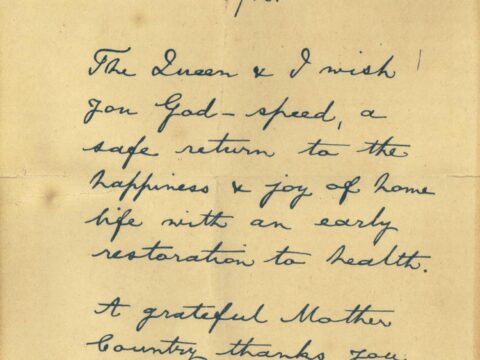 The Queen & I wish
you God-speed, a
safe return to the
happiness & joy of home
life with an early
restoration to health.
A grateful Mother
Country thanks you